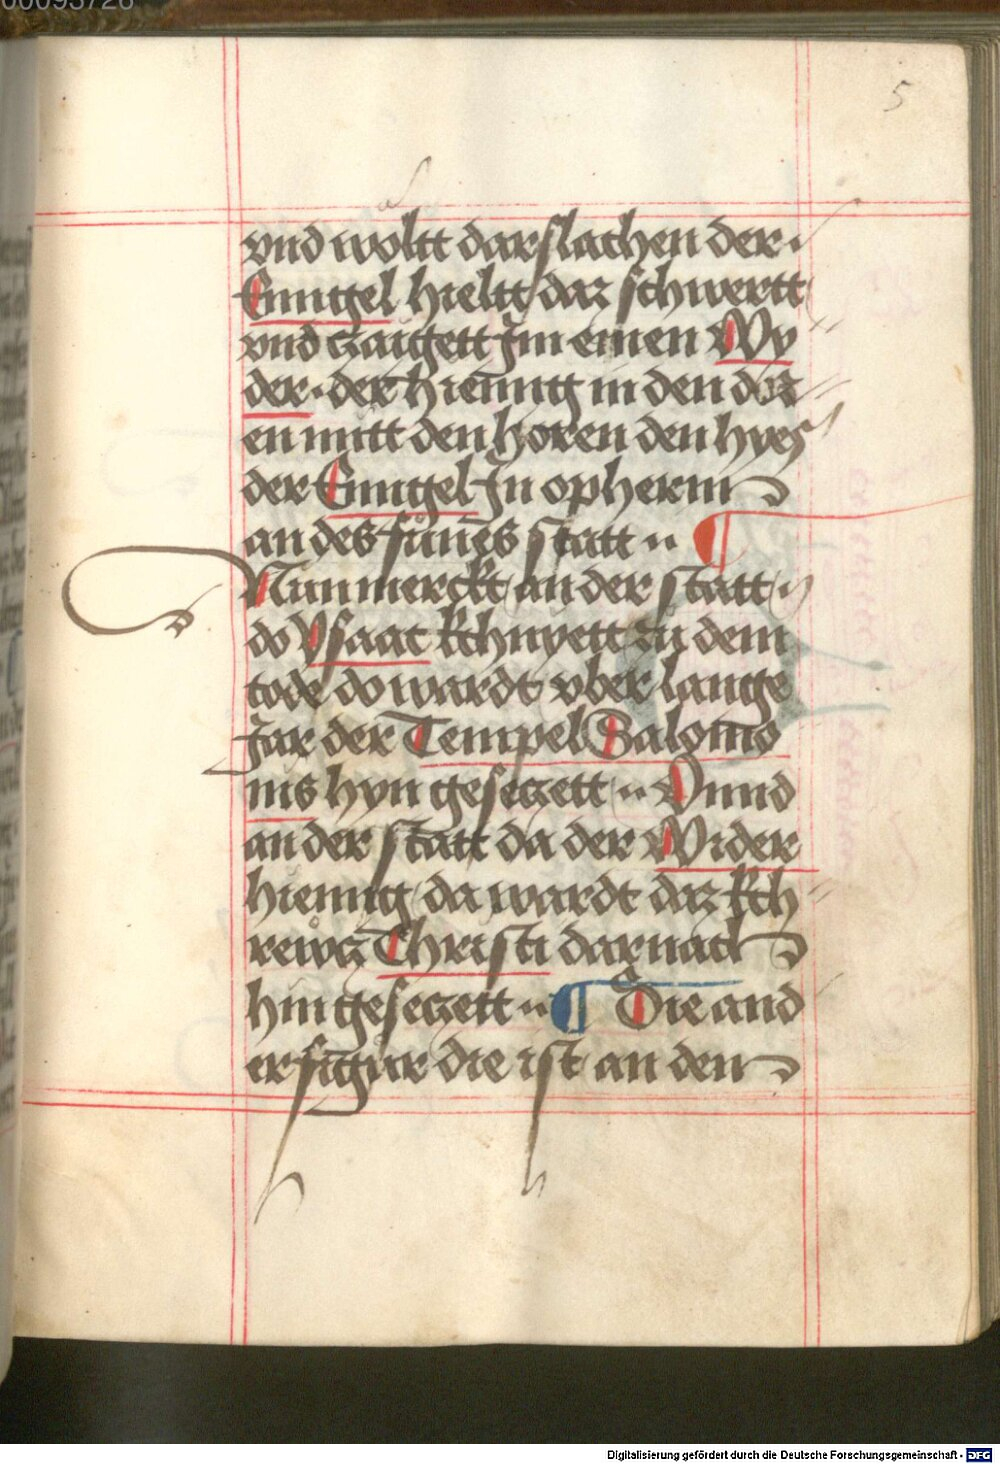 00093728
5
vnd woltt darslachen der.
Enngel hieltt daz schwertt
vnd czaigett Jm einen Wy
der. der hienng in den dor
en mitt den horen den hyes
der Enngel Jn opherm
an des sünes statt
Nun merckt an der statt
do Ysaac kchnyett zu dem
tode do wardt vber lannge
Jar der Tempel Salomo
nis hyn gesetzett Vnnd
an der statt da der Wider
hienng da wardt daz kch
rewcz Christi darnach
hin gesetzett ¶ Die and
er figur die ist an den
Digitalisierung gefördert durch die Deutsche Forschungsgemeinschaft - DFG